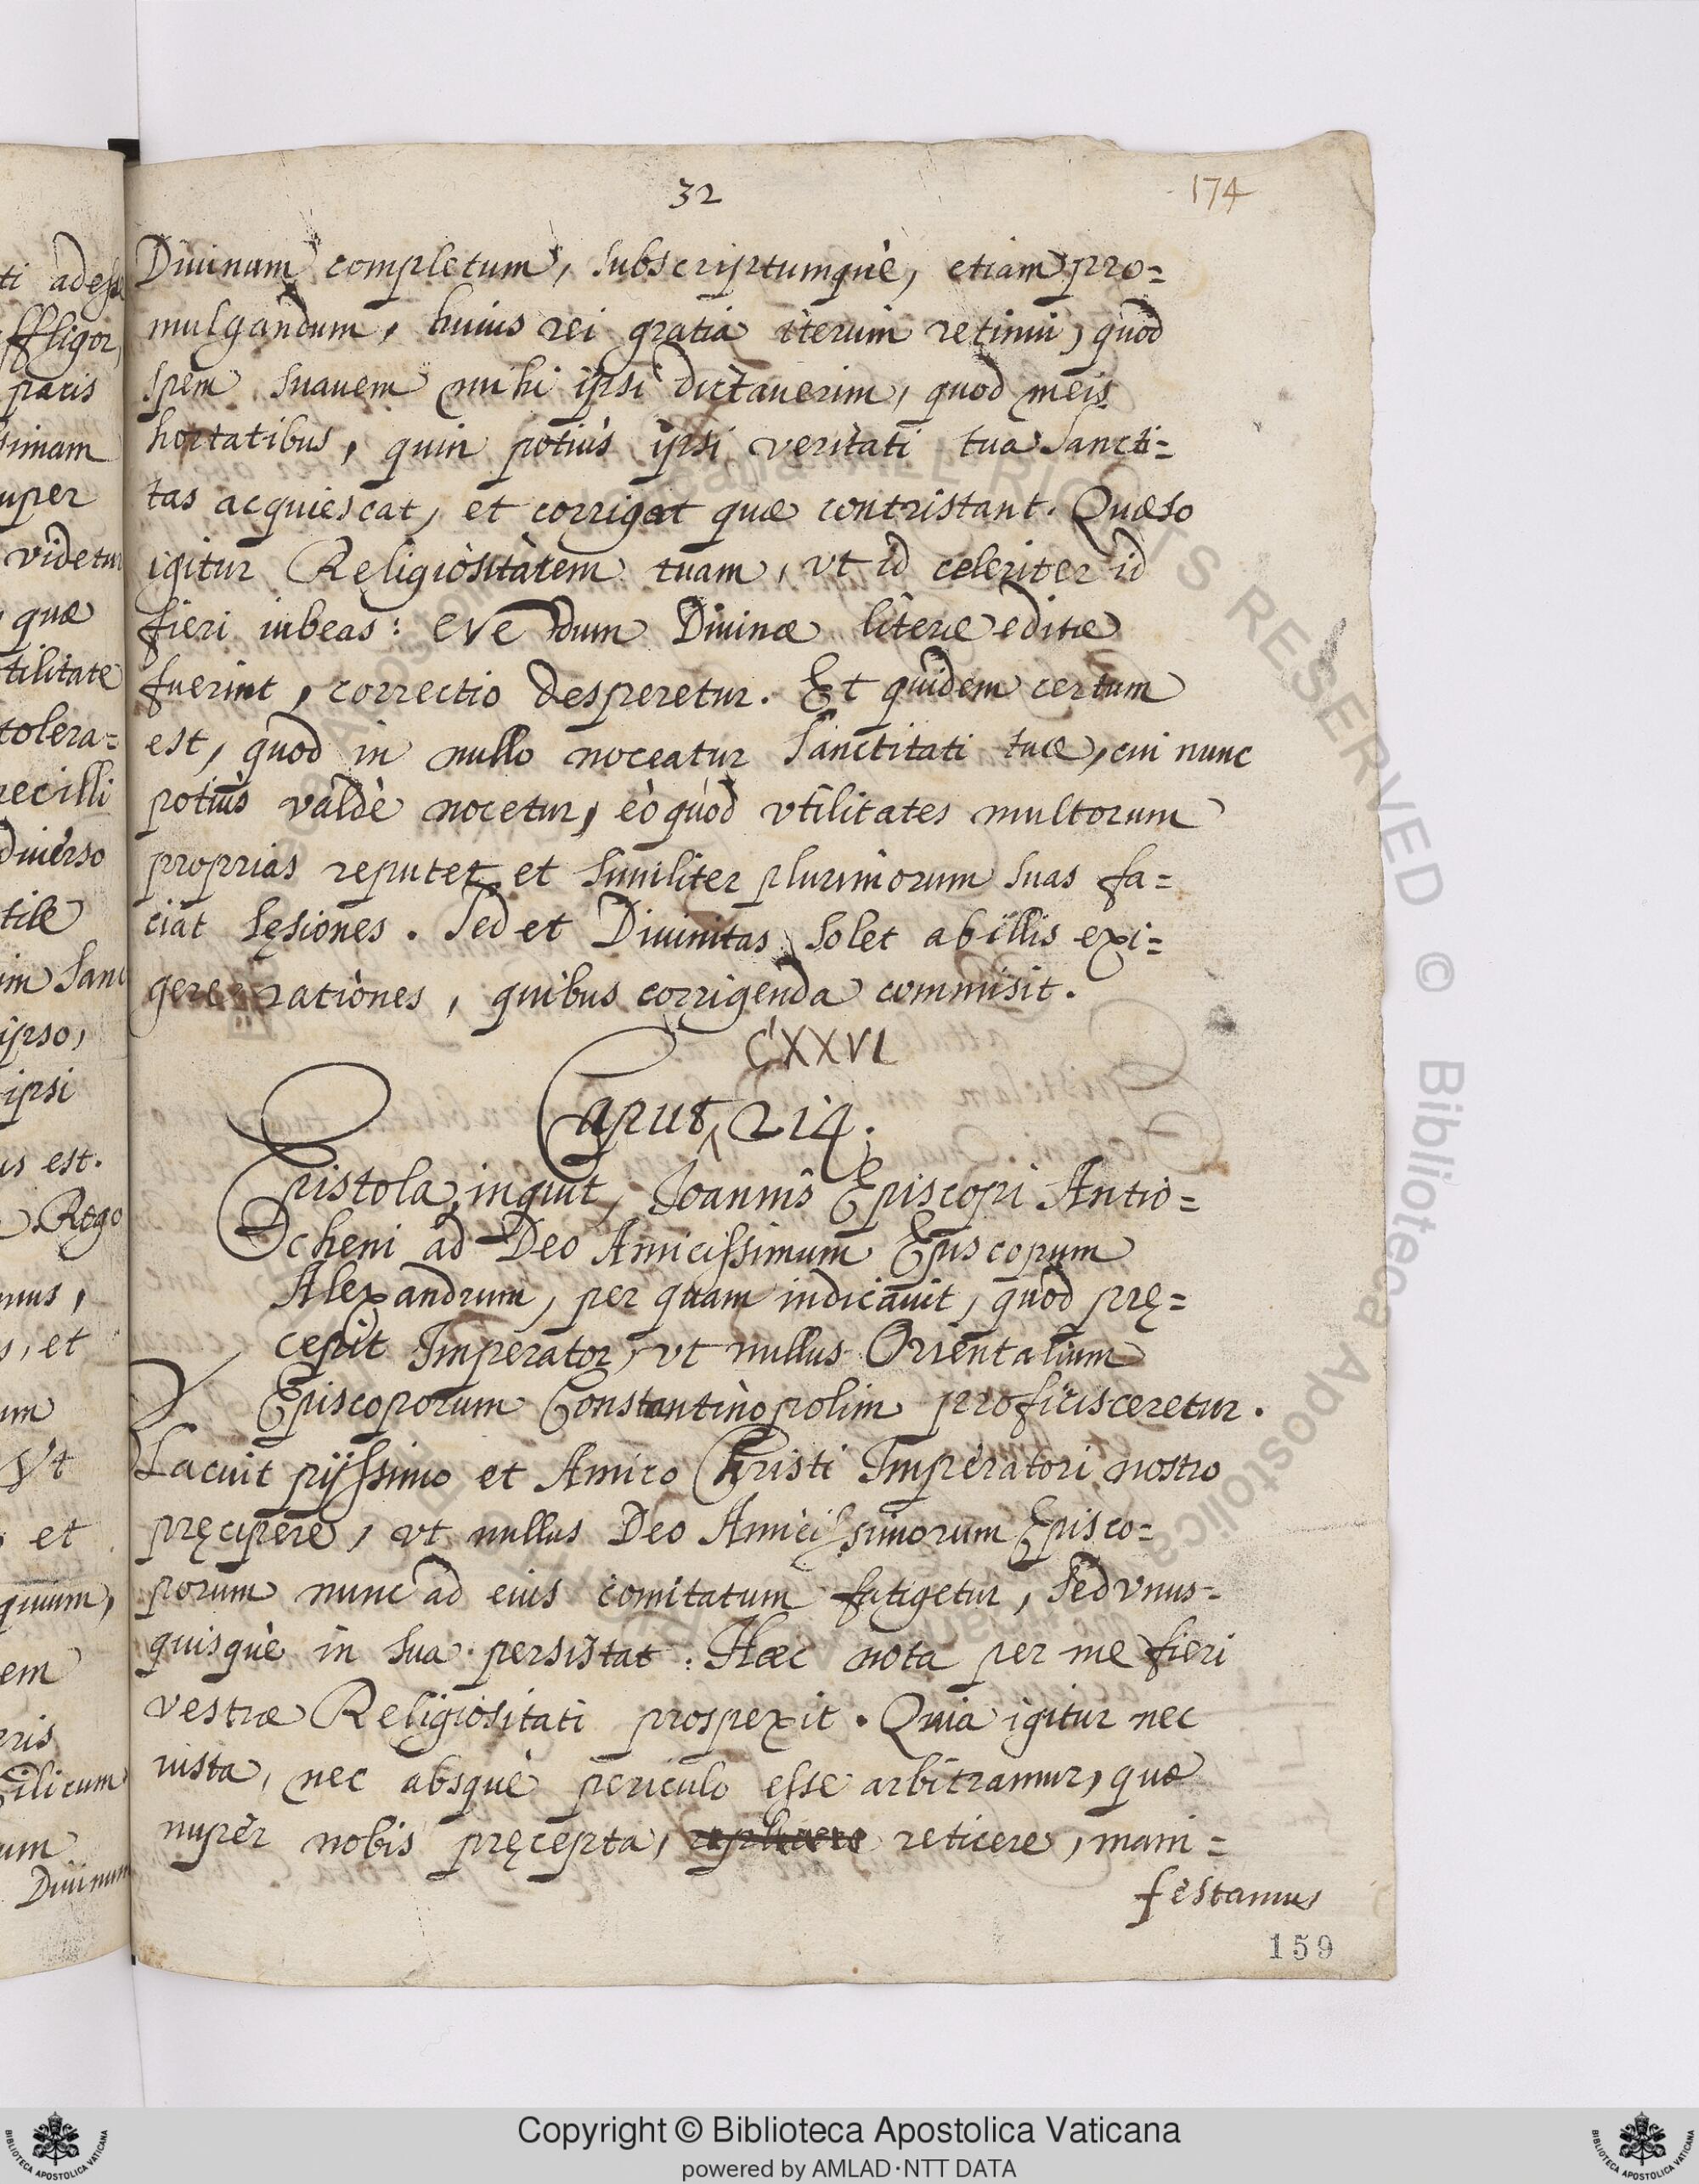 32
174
Diuinam completum, subscriptumquè, etiam pro=
mulgandum, huius rei gratia iterum retinui, quod
spem suauem mihi ipsi dictauerim, quod meis
hortatibus, quin potiùs ipsi veritati tua Sancti=
tas acquiescat, et corrigat quæ contristant. Quæso
igitur Religiositatem tuam, vt id celeriter id
fieri iubeas: eve dum Diuinæ literæ editæ
fuerint, correctio desperetur. Et quidem certum
est, quod in nullo noceatur Sanctitati tuæ, cui nunc
potiùs valdè nocetur, eò quod vtilitates multorum
proprias reputet, et similiter plurimorum suas fa=
ciat lęsiones. Sed et Diuinitas solet ab illis exi=
gere rationes, quibus corrigenda commisit.
CXXVI
Caput 214.
Epistola, inquit, Ioannis Episcopi Antio=
cheni ad Deo Amicissimum Episcopum
Alexandrum, per quam indicauit, quod prę=
cepit Imperator, vt nullus Orientalium
Episcoporum Constantinopolim proficisceretur.
Placuit pijssimo et Amico Christi Imperatori nostro
pręcipere, vt nullus Deo Amicissimorum Episco=
porum nunc ad eius comitatum fatigetur, sed vnus=
quisquè in sua persistat. Hæc nota per me fieri
vestræ Religiositati prospexit. Quia igitur nec
iusta, nec absquè periculo esse arbitramur, quæ
nupèr nobis pręcepta, reticere, mani=
festamus
159
ti adess
ffligor,
pacis
simam
uper
videtur
quæ
tilitate
tolera=
ecilli
diuerso
tile
im Sanc
ipso,
ipsi
us est.
Rogo
mus,
s, et
um
Vt
et
quium,
em
ris
ilicum
um
Diuinum
Copyright © Biblioteca Apostolica Vaticana
powered by AMLAD·NTT DATA
ALL RIGHTS RESERVED © Biblioteca Apostolica Vaticana
BIBLIOTECA APOSTOLICA VATICANA
BIBLIOTECA APOSTOLICA VATICANA